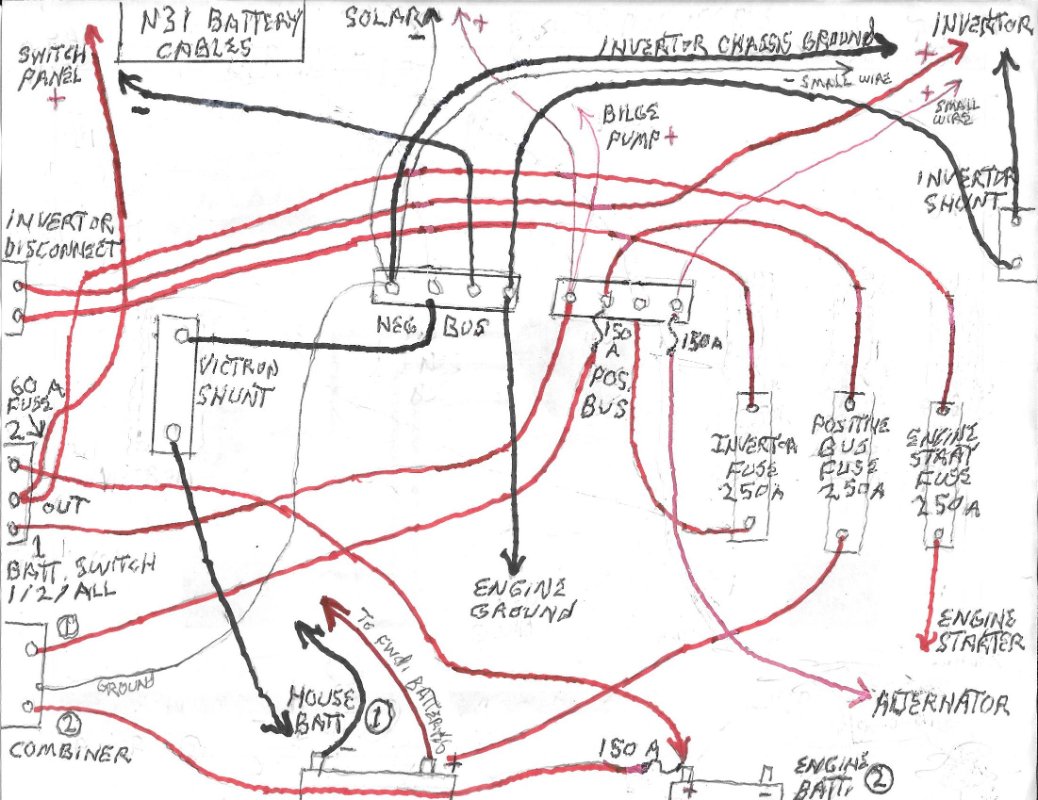 N31 BATTERY
CABLES
SOLAR
-
+
INVERTOR CHASSIS GROUND
INVERTOR
+
SWITCH
PANEL
+
-
- SMALL WIRE
+
SMALL
WIRE
BILGE
PUMP +
INVERTOR
SHUNT
INVERTOR
DISCONNECT
NEG. BUS
150
A
150A
POS.
BUS
VICTRON
SHUNT
60 A
FUSE
2
OUT
1
BATT. SWITCH
1/2/ALL
INVERTOR
FUSE
250A
POSITIVE
BUS
FUSE
250A
ENGINE
START
FUSE
250A
ENGINE
GROUND
ENGINE
STARTER
1
GROUND
2
COMBINER
TO FWD. BATTERIES
HOUSE
BATT 1
-
+
ALTERNATOR
150 A
+
-
ENGINE
BATT. 2